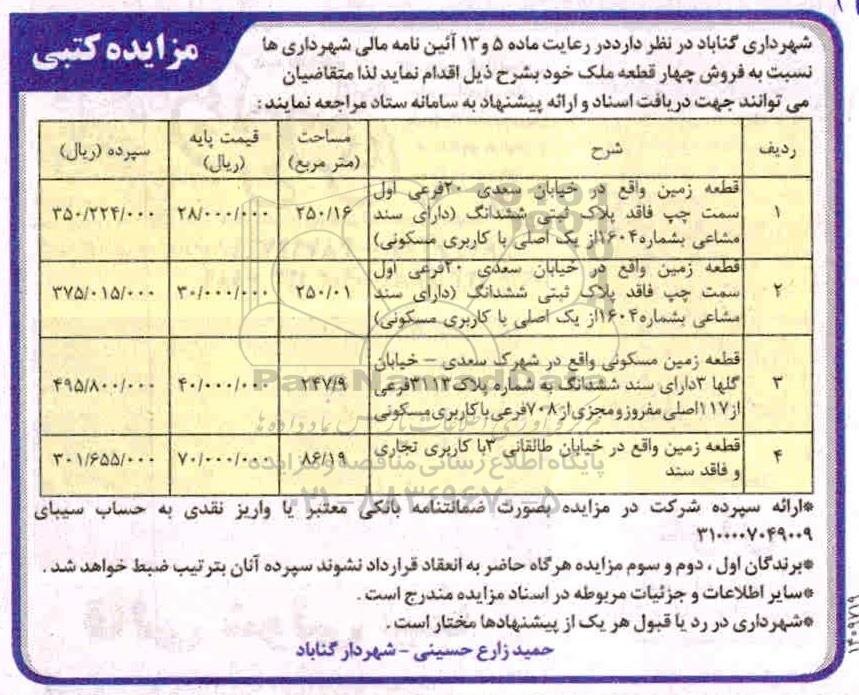 مزایده کتبی
شهرداری گناباد در نظر دارددر رعایت ماده ۵ و۱۳ آئین نامه مالی شهرداری ها
نسبت به فروش چهار قطعه ملک خود بشرح ذیل اقدام نماید لذا متقاضیان
می توانند جهت دریافت اسناد و ارائه پیشنهاد به سامانه ستاد مراجعه نمایند:
ردیف شرح مساحت (متر مربع) قیمت پایه (ریال) سپرده (ریال)
۱ قطعه زمین واقع در خیابان سعدی ۲۰فرعی اول
سمت چپ فاقد پلاک ثبتی ششدانگ (دارای سند ۲۵۰/۱۶ ۲۸/۰۰۰/۰۰۰ ۳۵۰/۲۲۴/۰۰۰
مشاعی بشماره۱۶۰۴از یک اصلی با کاربری مسکونی)
۲ قطعه زمین واقع در خیابان سعدی ۲۰فرعی اول
سمت چپ فاقد پلاک ثبتی ششدانگ (دارای سند ۲۵۰/۰۱ ۳۰/۰۰۰/۰۰۰ ۳۷۵/۰۱۵/۰۰۰
مشاعی بشماره۱۶۰۴از یک اصلی با کاربری مسکونی)
۳ قطعه زمین مسکونی واقع در شهرک سعدی – خیابان
گلها ۳دارای سند ششدانگ به شماره پلاک۳۱۱۳فرعی ۲۴۷/۹ ۴۰/۰۰۰/۰۰۰ ۴۹۵/۸۰۰/۰۰۰
از۱۱۷اصلی مفروزو مجزی از۷۰۸فرعی با کاربری مسکونی
۴ قطعه زمین واقع در خیابان طالقانی ۳با کاربری تجاری ۸۶/۱۹ ۷۰/۰۰۰/۰۰۰ ۳۰۱/۶۵۵/۰۰۰
و فاقد سند
پایگاه اطلاع رسانی مناقصه و مزایده
۰۲۱-۸۸۳۴۹۶۷۰-۵
*ارائه سپرده شرکت در مزایده بصورت ضمانتنامه بانکی معتبر یا واریز نقدی به حساب سیبای
۳۱۰۰۰۰۷۰۴۹۰۰۹
*برندگان اول ، دوم و سوم مزایده هرگاه حاضر به انعقاد قرارداد نشوند سپرده آنان بترتیب ضبط خواهد شد .
*سایر اطلاعات و جزئیات مربوطه در اسناد مزایده مندرج است .
*شهرداری در رد یا قبول هر یک از پیشنهادها مختار است .
حمید زارع حسینی – شهردار گناباد
۱۴۰۹۷۱۹